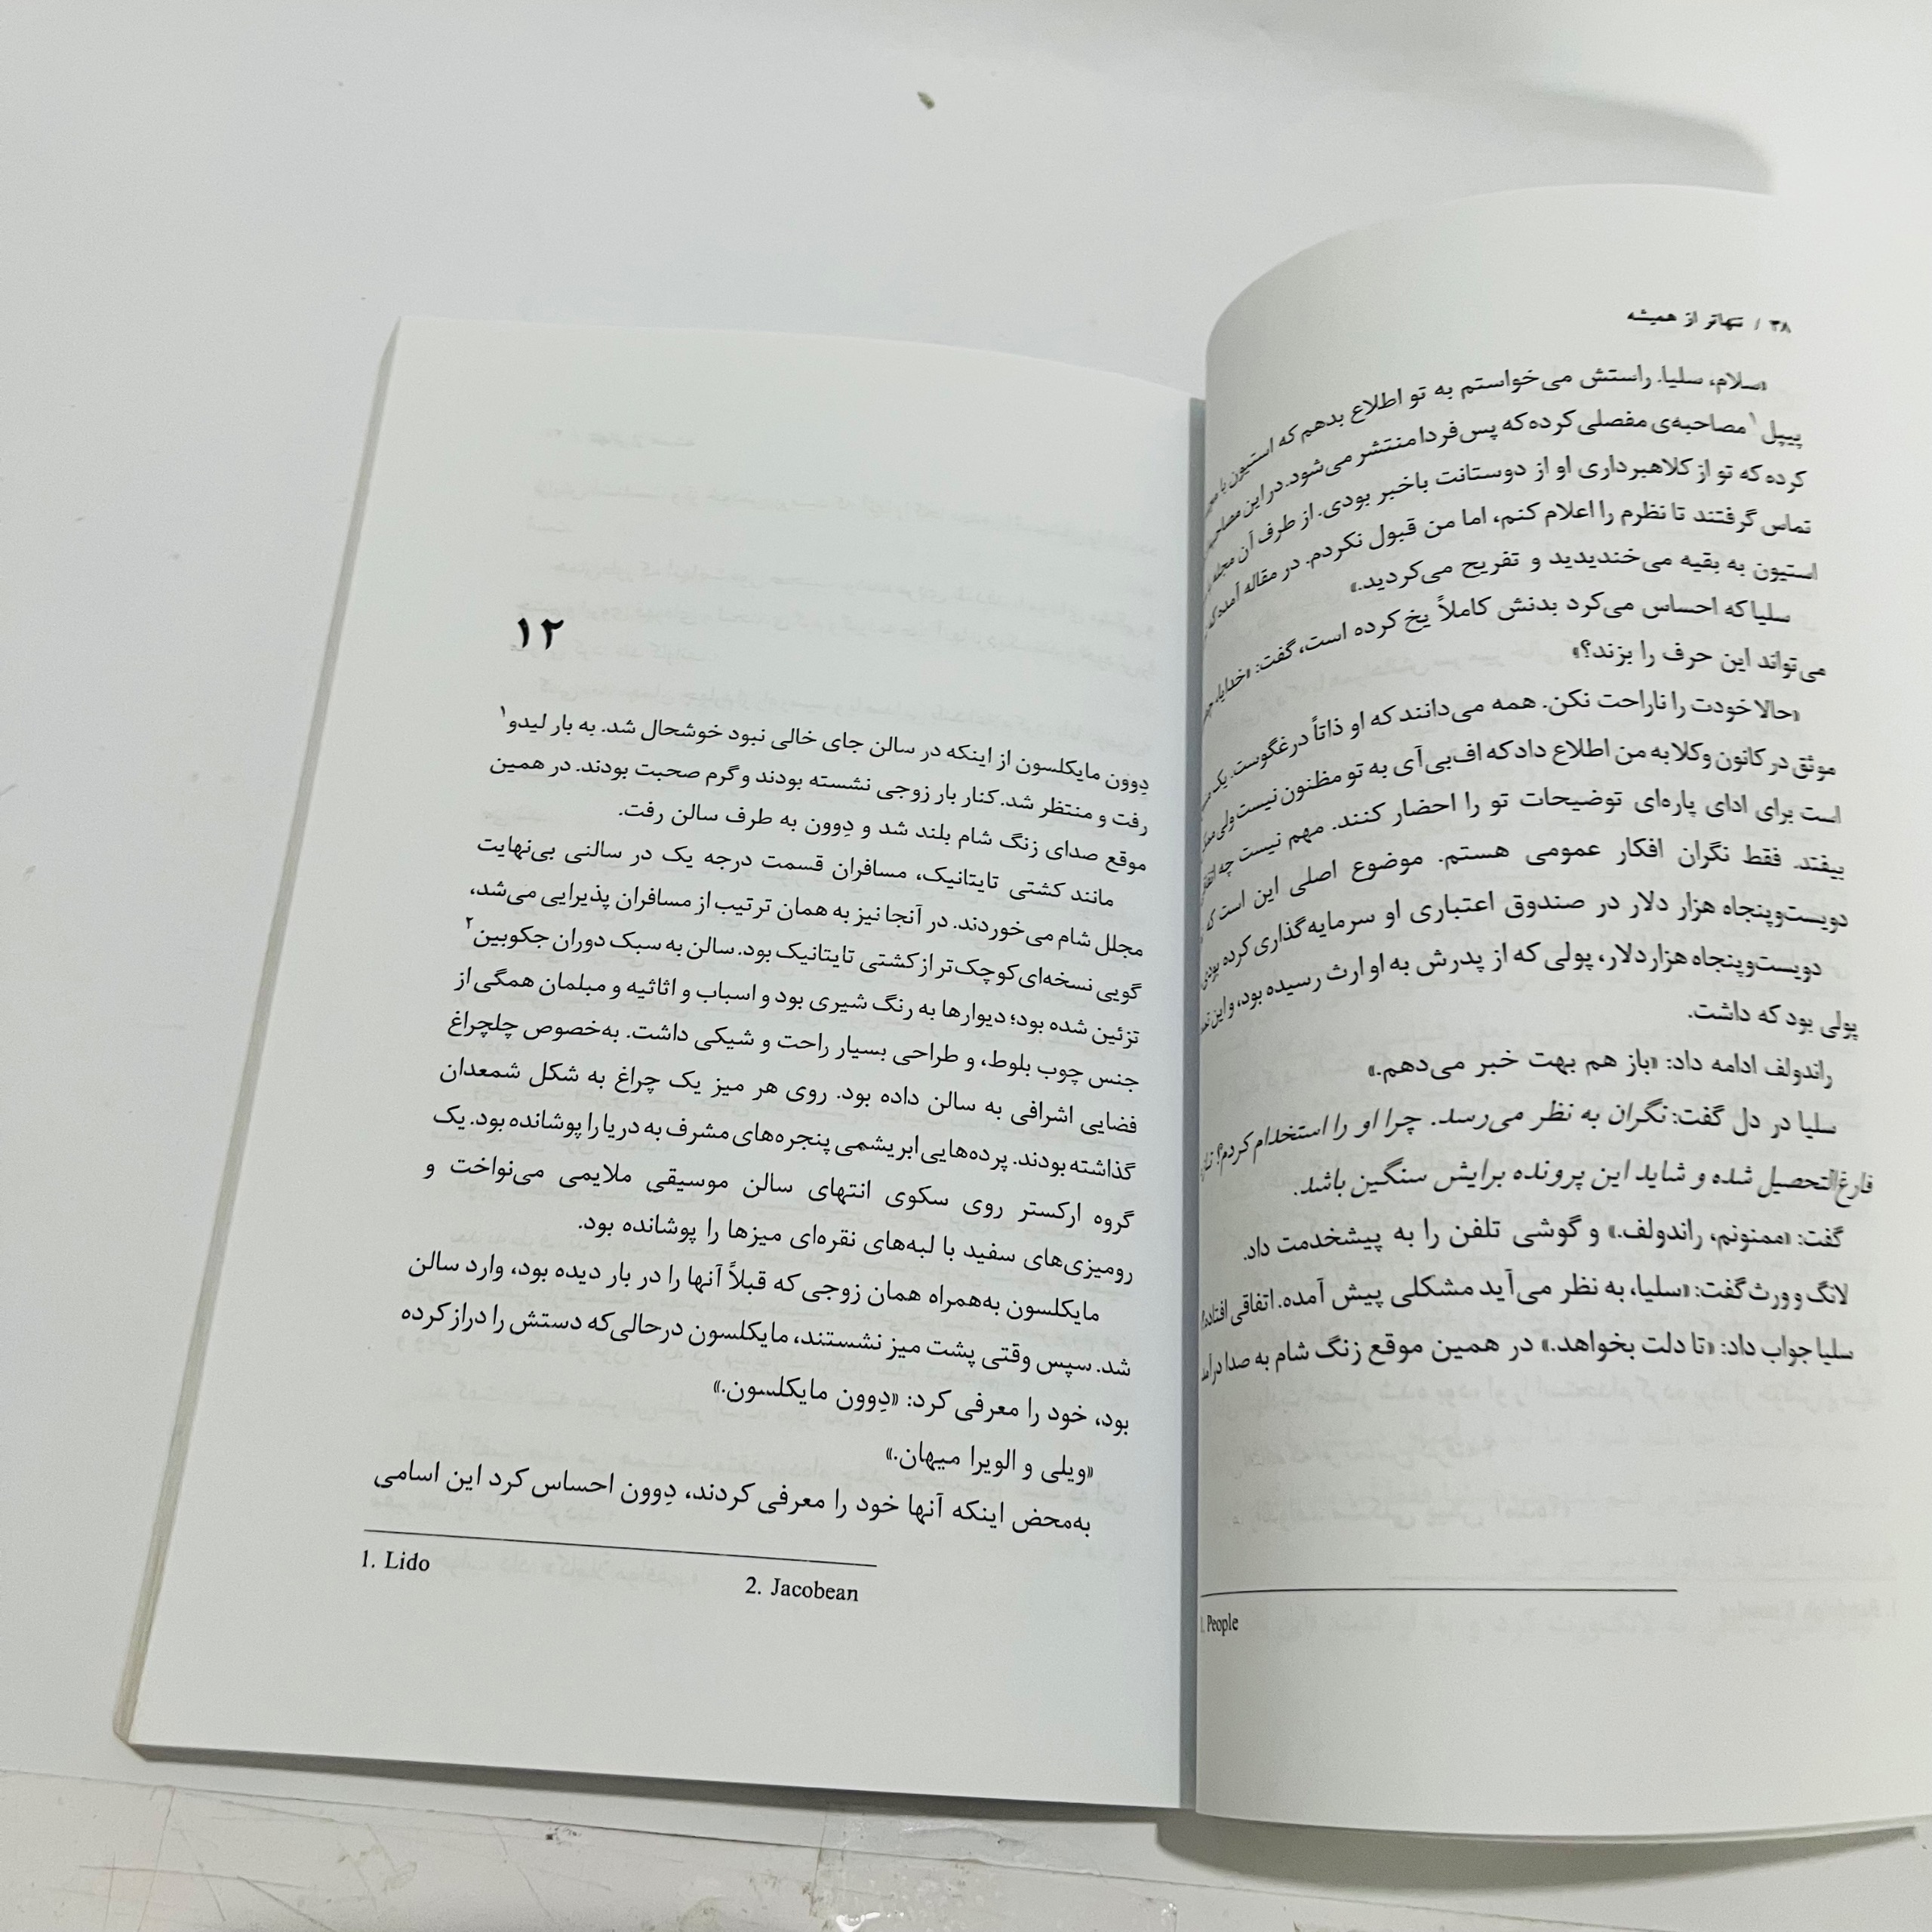 ۳۸ / تنهاتر از همیشه
«سلام، سلیا. راستش می‌خواستم به تو اطلاع بدهم که استیون با
پیپل۱ مصاحبه‌ی مفصلی کرده که پس‌فردا منتشر می‌شود. در این
کرده که تو از کلاهبرداری او از دوستانت باخبر بودی. از طرف آن مجله
تماس گرفتند تا نظرم را اعلام کنم، اما من قبول نکردم. در مقاله آمده که
استیون به بقیه می‌خندیدید و تفریح می‌کردید.»
سلیا که احساس می‌کرد بدنش کاملاً یخ کرده است، گفت: «خدایا،
می‌تواند این حرف را بزند؟»
«حالا خودت را ناراحت نکن. همه می‌دانند که او ذاتاً درغگوست. یک
موثق در کانون وکلا به من اطلاع داد که اف‌بی‌آی به تو مظنون نیست ولی
است برای ادای پاره‌ای توضیحات تو را احضار کنند. مهم نیست چه
بیفتد. فقط نگران افکار عمومی هستم. موضوع اصلی این است که
دویست‌وپنجاه هزار دلار در صندوق اعتباری او سرمایه‌گذاری کرده بودی
دویست‌وپنجاه هزار دلار، پولی که از پدرش به او ارث رسیده بود، و این
پولی بود که داشت.
راندولف ادامه داد: «باز هم بهت خبر می‌دهم.»
سلیا در دل گفت: نگران به نظر می‌رسد. چرا او را استخدام کردم؟
فارغ‌التحصیل شده و شاید این پرونده برایش سنگین باشد.
گفت: «ممنونم، راندولف.» و گوشی تلفن را به پیشخدمت داد.
لانگ‌وورث گفت: «سلیا، به نظر می‌آید مشکلی پیش آمده. اتفاقی افتاده؟
سلیا جواب داد: «تا دلت بخواهد.» در همین موقع زنگ شام به صدا درآمد
1. People
۱۲
دِوون مایکلسون از اینکه در سالن جای خالی نبود خوشحال شد. به بار لیدو۱
رفت و منتظر شد. کنار بار زوجی نشسته بودند و گرم صحبت بودند. در همین
موقع صدای زنگ شام بلند شد و دِوون به طرف سالن رفت.
مانند کشتی تایتانیک، مسافران قسمت درجه یک در سالنی بی‌نهایت
مجلل شام می‌خوردند. در آنجا نیز به همان ترتیب از مسافران پذیرایی می‌شد،
گویی نسخه‌ای کوچک‌تر از کشتی تایتانیک بود. سالن به سبک دوران جکوبین۲
تزئین شده بود؛ دیوارها به رنگ شیری بود و اسباب و اثاثیه و مبلمان همگی از
جنس چوب بلوط، و طراحی بسیار راحت و شیکی داشت. به‌خصوص چلچراغ
فضایی اشرافی به سالن داده بود. روی هر میز یک چراغ به شکل شمعدان
گذاشته بودند. پرده‌هایی ابریشمی پنجره‌های مشرف به دریا را پوشانده بود. یک
گروه ارکستر روی سکوی انتهای سالن موسیقی ملایمی می‌نواخت و
رومیزی‌های سفید با لبه‌های نقره‌ای میزها را پوشانده بود.
مایکلسون به‌همراه همان زوجی که قبلاً آنها را در بار دیده بود، وارد سالن
شد. سپس وقتی پشت میز نشستند، مایکلسون درحالی‌که دستش را دراز کرده
بود، خود را معرفی کرد: «دِوون مایکلسون.»
«ویلی و الویرا میهان.»
به‌محض اینکه آنها خود را معرفی کردند، دِوون احساس کرد این اسامی
1. Lido
2. Jacobean